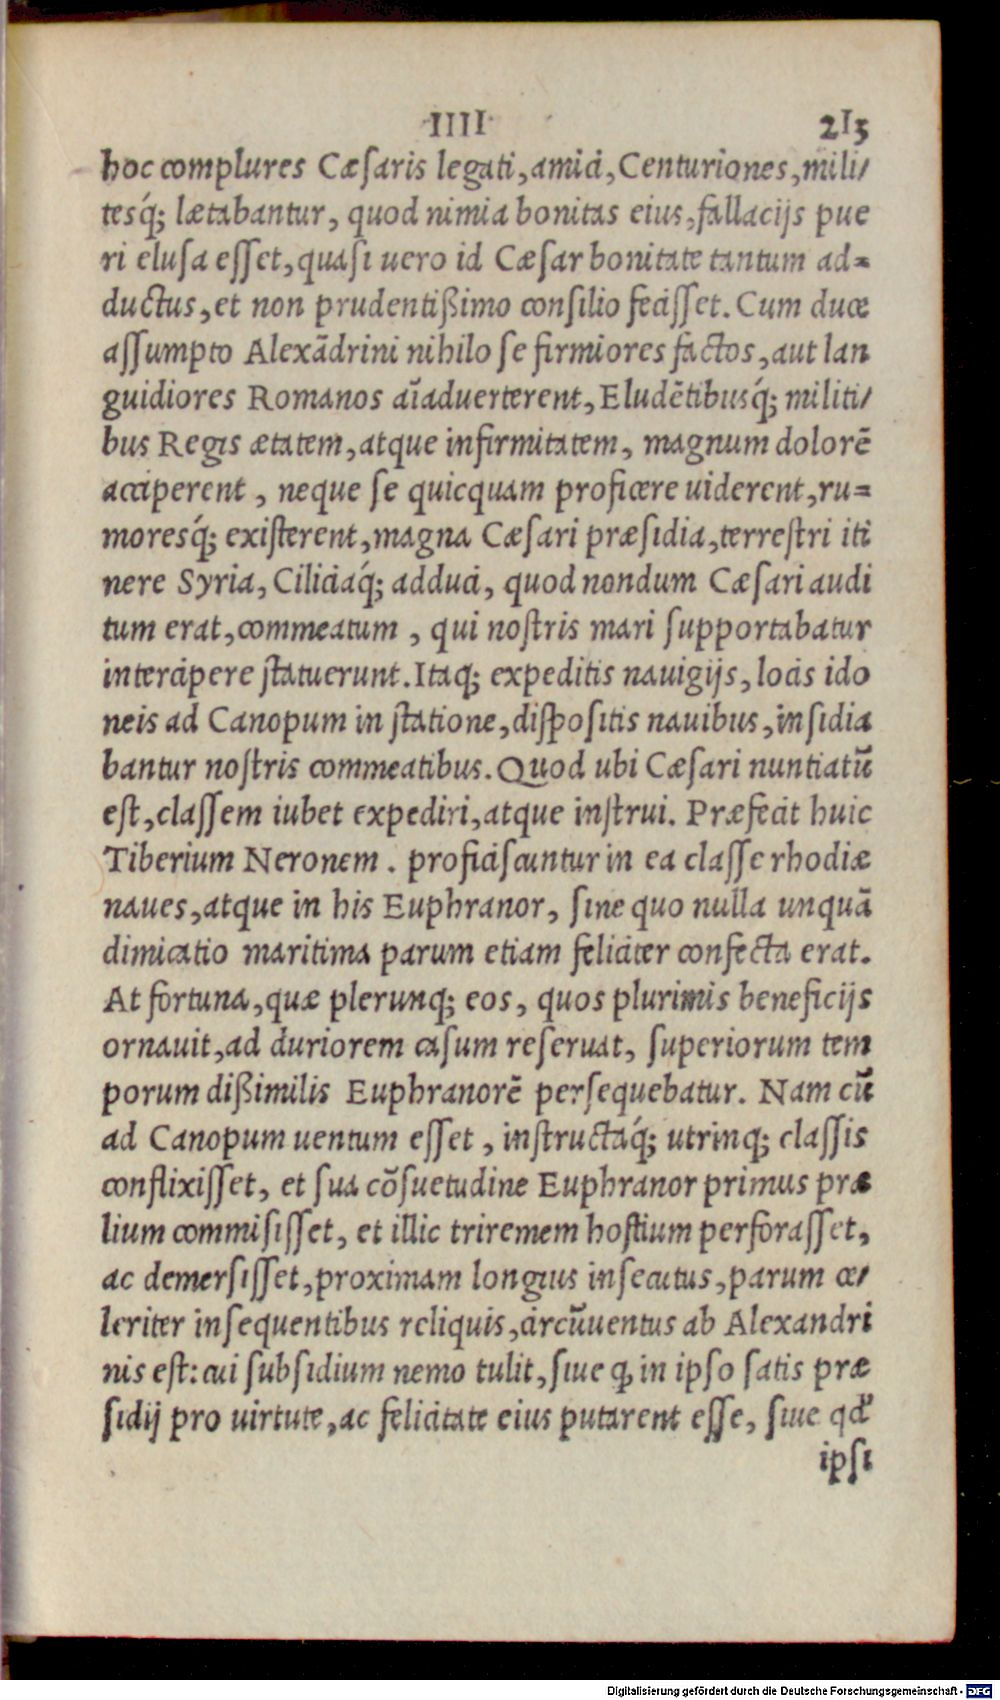 IIII 213
hoc complures Cæſaris legati, amici, Centuriones, mili/
tesq́; lætabantur, quod nimia bonitas eius, fallacijs pue
ri eluſa eſſet, quaſi uero id Cæſar bonitate tantum ad=
ductus, et non prudentißimo conſilio feciſſet. Cum duce
aſſumpto Alexãdrini nihilo ſe firmiores factos, aut lan
guidiores Romanos aĩaduerterent, Eludẽtibusq́; militi/
bus Regis ætatem, atque infirmitatem, magnum dolorẽ
acciperent, neque ſe quicquam proficere uiderent, ru=
moresq́; exiſterent, magna Cæſari præſidia, terreſtri iti
nere Syria, Ciliciaq́; adduci, quod nondum Cæſari audi
tum erat, commeatum, qui noſtris mari ſupportabatur
intercipere ſtatuerunt. Itaq; expeditis nauigijs, locis ido
neis ad Canopum in ſtatione, diſpoſitis nauibus, inſidia
bantur noſtris commeatibus. Quod ubi Cæſari nuntiatũ
eſt, claſſem iubet expediri, atque inſtrui. Præfecit huic
Tiberium Neronem. proficiſcuntur in ea claſſe rhodiæ
naues, atque in his Euphranor, ſine quo nulla unquã
dimicatio maritima parum etiam feliciter confecta erat.
At fortuna, quæ plerunq; eos, quos plurimis beneficijs
ornauit, ad duriorem caſum reſeruat, ſuperiorum tem
porum dißimilis Euphranorẽ perſequebatur. Nam cũ
ad Canopum uentum eſſet, inſtructaq́; utrinq; claſſis
conflixiſſet, et ſua cõſuetudine Euphranor primus præ
lium commiſiſſet, et illic triremem hoſtium perforaſſet,
ac demerſiſſet, proximam longius inſecutus, parum ce/
leriter inſequentibus reliquis, circũuentus ab Alexandri
nis eſt: cui ſubſidium nemo tulit, ſiue ꝙ in ipſo ſatis præ
ſidij pro uirtute, ac felicitate eius putarent eſſe, ſiue qď
ipſi
Digitalisierung gefördert durch die Deutsche Forschungsgemeinschaft - DFG